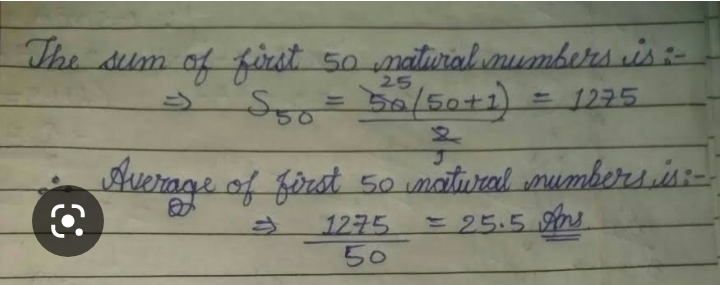 The sum of first 50 natural numbers is :-
25
⇒ S50 = 50(50+1) = 1275
2
1
∴ Average of first 50 natural numbers is :-
⇒ 1275 = 25.5 Ans
50